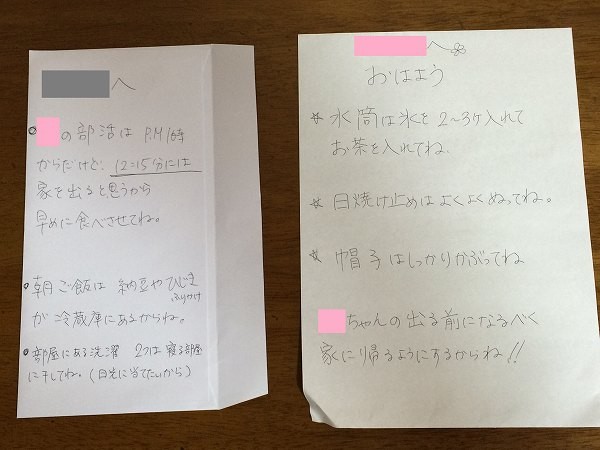 へ
の部活は P.M 1時
からだけど、12:15分には
家を出ると思うから
早めに食べさせてね。
朝ご飯は 納豆や ひじき
ふりかけ
が 冷蔵庫にあるからね。
部屋にある洗濯 2つは 寝る部屋
に干してね。(日光に当てたいから)
へ
おはよう
☆ 水筒は氷を 2〜3ヶ入れて
お茶を入れてね。
☆ 日焼け止めは よくよくぬってね。
☆ 帽子はしっかりかぶってね
ちゃんの出る前になるべく
家に帰るようにするからね!!